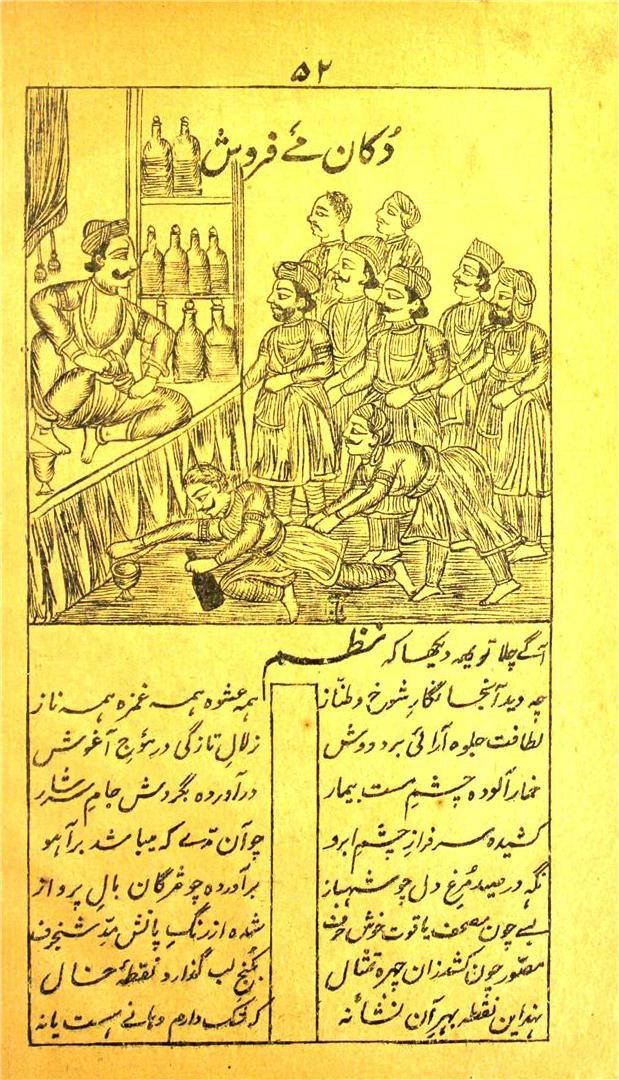 ۵۲
دُکان مَے فروش
آگے چلا تو یہہ دیکھا کہ نظم
چہ دید آنجا نگارِ شوخ و طنّاز ہمہ عشوہ ہمہ غمزہ ہمہ ناز
لطافت جلوہ آرائی بر و دوش زلالِ تازگی در موج آغوش
خمار آلودہ چشمِ مست بیمار در آوردہ بگردش جامِ سرشار
کشیدہ سرفراز چشمِ ابرو چو آن مدّے کہ میباشد بر آہو
نگہ در صیدِ مرغِ دل چو شہباز برآوردہ چو مژگان بالِ پرواز
لبے چون مصحف یاقوت خوش حرف شدہ از رنگِ پانش مدِّ شنجرف
مصوّر چون کشد زان چہرہ تمثال بکُنجِ لب گذارد نقطۂ خال
نہد این نقطہ بہر آن نشانہ کہ شک دارم دہانے ہست یا نہ